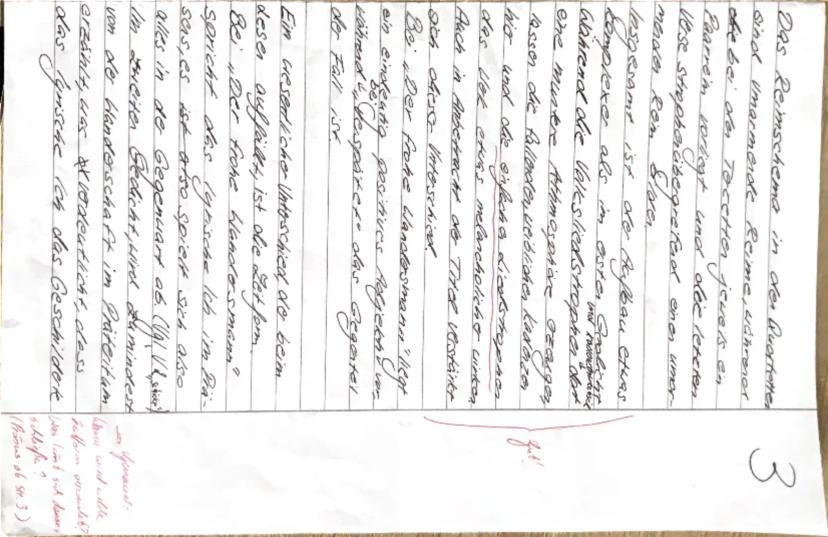 3
Das Reimschema in den Quartetten
sind Umarmende Reime, während
bei den Terzetten jeweils ein
Paarreim vorliegt und die letzten
Verse strophenübergreifend einen umar-
menden Reim bilden.
Insgesamt ist der Aufbau etwas
komplexer als im ersten Gedicht.
Während die Volksliedstrophen dort
eine muntere Atmosphäre erzeugen,
lassen die fallenden weiblichen Kadenzen
hier und die einfache Liedstrophen
das Werk etwas melancholischer wirken.
Auch in Anbetracht der Titel verstärkt
sich dieser Unterschied.
Bei „Der frohe Wandersmann" liegt
ein eindeutig positives Adjektiv vor,
während bei „Verspätet" das Gegenteil
der Fall ist.
Ein wesentlicher Unterschied, der beim
Lesen auffällt, ist die Zeitform.
Bei „Der frohe Wandersmann"
spricht das lyrische Ich im Prä-
sens, es spielt sich also
alles in der Gegenwart ab
Im zweiten Gedicht wird zumindest
von der Wanderschaft im Präteritum
erzählt, was verdeutlicht, dass
das lyrische Ich das Geschilderte
gut!